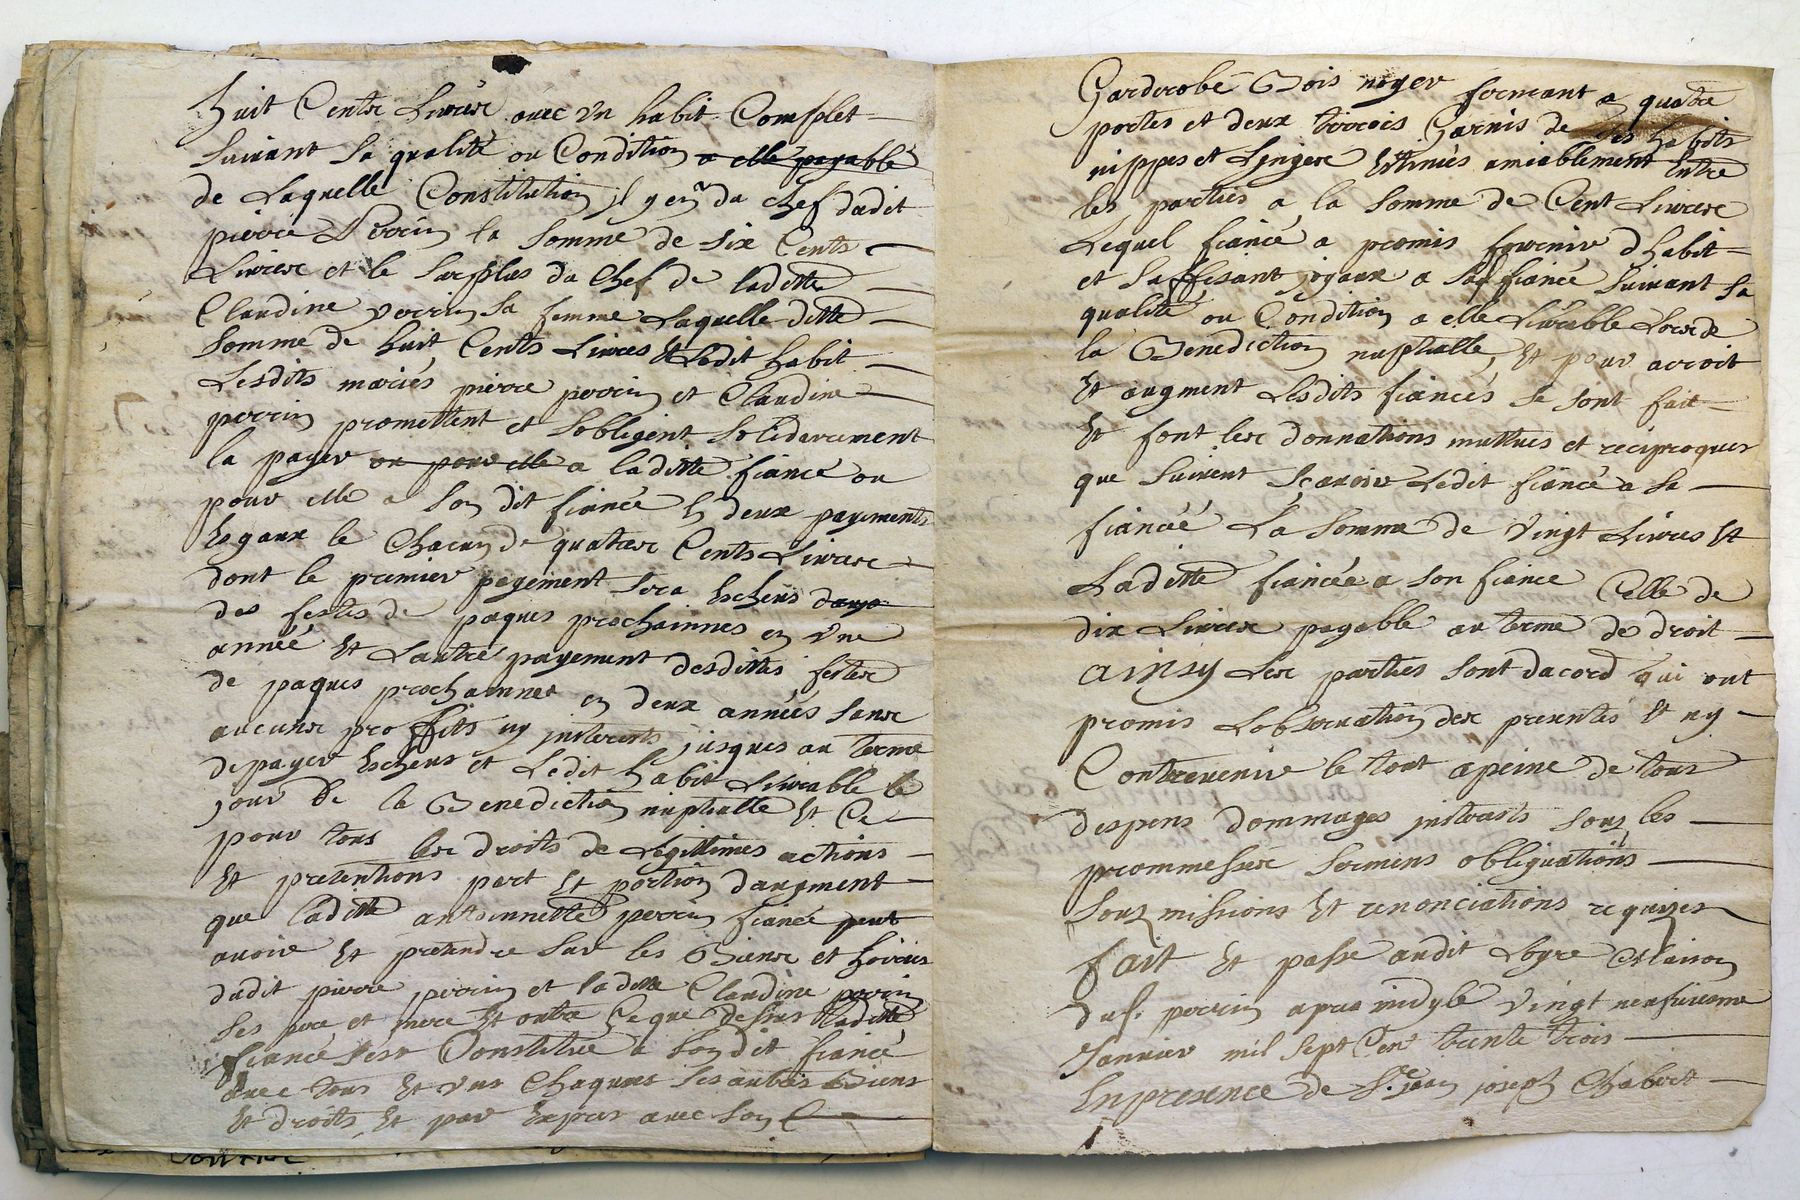 huit Cents Livres avec un habit Complet
suivant sa qualité ou Condition a elle payable
de Laquelle Constitution il y en du chef dudit
pierre Perrin la somme de six Cents
Livres et le surplus du Chef de laditte
Claudine perrin sa femme Laquelle ditte
somme de huit Cents Livres et Ledit habit
Lesdits mariés pierre perrin et Claudine
perrin promettent et sobligent solidairement
la payer ou pour elle a laditte fiancé ou
pour elle a son dit fiancé en deux payements
Esgaux le Chacun de quatre Cents Livres
dont le premier payement sera Escheus dans
des festes de paques prochainnes en une
année Et Lautre payement desdittes festes
de paques prochainnes en deux années sans
aucuns proffits ny interests jusques au terme
de payer Escheus et Ledit habit Livrable le
jour de la Benediction nuptialle Et Ce
pour tous les droits de Legittimes actions
Et pretentions part Et portion daugment
que laditte anthoinnette perrin fiancé peut
avoir Et pretendre sur les Biens et hoiries
dudit pierre perrin et laditte Claudine perrin
ses pere et mere Et outre Ce que dessus laditte
fiancé sest Constitué a son dit fiancé
avec tous Et uns Chaques ses autres Biens
Et droits Et par Expres avec son
Garderobe Bois noyer fermant a quatre
portes et deux tirrois Garnis de ses habits
nippes et Linges Estimés amiablement Entre
les parties a la somme de Cent Livres
Lequel fiancé a promis fournir dhabit
et suffisant joyaux a sa fiancé suivant sa
qualité ou Condition a elle Livrable Lors de
la Benediction nuptialle, Et pour acroit
Et augment Lesdits fiancés se sont fait
Et font les donnations muttues et reciproques
que suivent Scavoir Ledit fiancé a sa
fiancéé La somme de vingt Livres Et
Laditte fiancée a son fiancé Celle de
dix Livres payable au terme de droit
ainsy Les parties sont dacord qui ont
promis Lobservation des presentes Et ny
Contrevenir le tout apeine de tous
despens dommages interests sous les
prommesses sermens obliguations
souz missions Et renonciations requizes
fait Et passé audit Loyre Maison
dud. perrin apres midy le vingt neufvieme
Janvier mil sept Cent trente trois
En presence de Sr. jean joseph Chabert